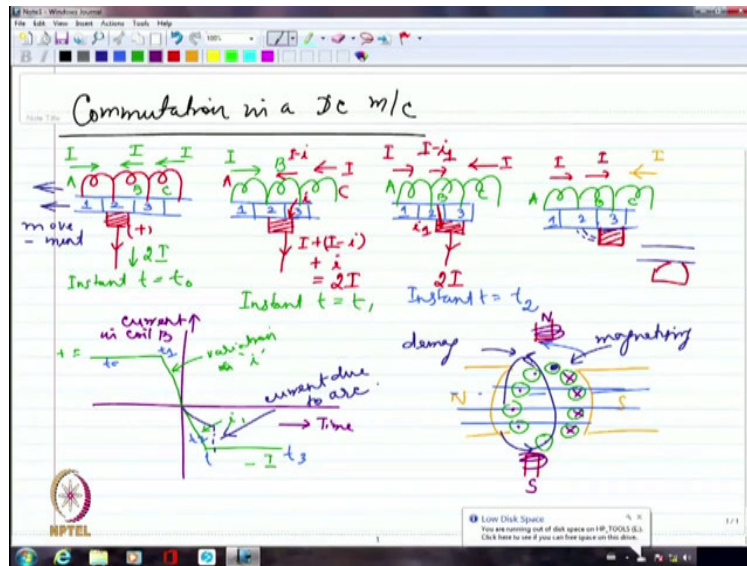 Note1 - Windows Journal
File Edit View Insert Actions Tools Help
100%
B I
Note Title
Commutation in a DC m/c
I I I
A B C
1 2 3
move
- ment
(+)
2I
Instant t = t₀
I I-i I
A B C
i
1 2 3
I + (I - i)
+ i
= 2I
Instant t = t₁
I I-i₁ I
A B C
1 2 3
i₁
2I
Instant t = t₂
I I I
A B C
1 2 3
current
in coil B
variation
in "i"
current due
to arc
Time
- I t₃
demag
magnetising
N
N S
S
NPTEL
Low Disk Space
You are running out of disk space on HP_TOOLS (E:).
Click here to see if you can free space on this drive.
1 / 1
1